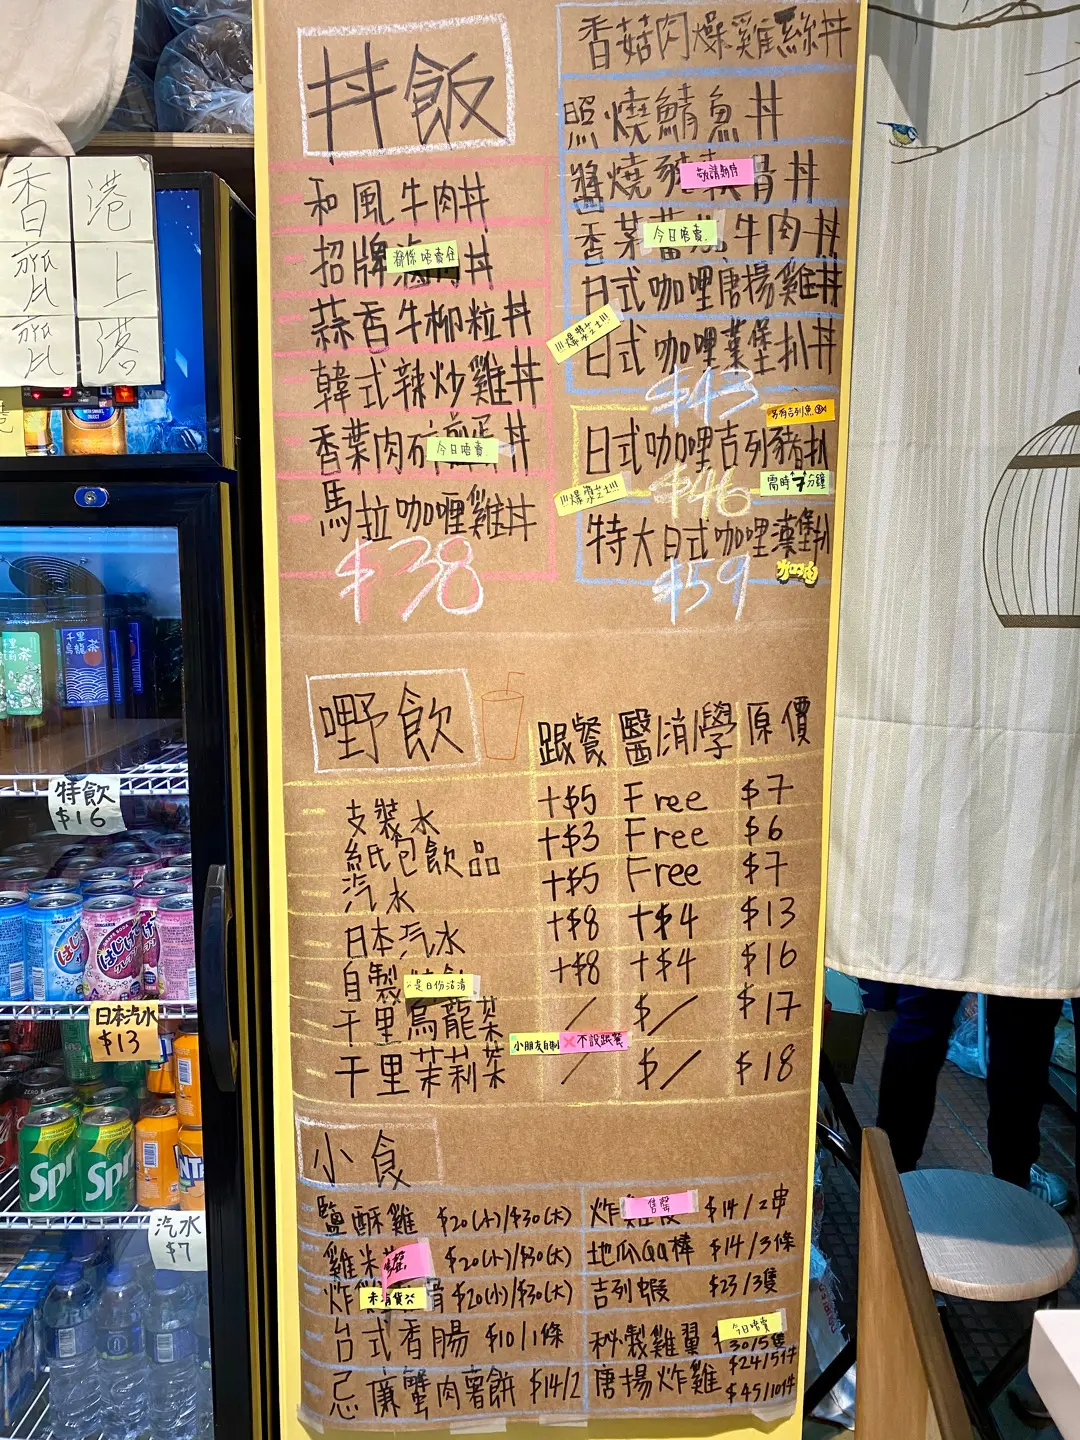 香 港
齊 上
齊 港
丼飯
和風牛肉丼
招牌 肉丼
都係唔賣住
蒜香牛柳粒丼
韓式辣炒雞丼
香葉肉 丼
今日唔賣
馬拉咖喱雞丼
$38
香菇肉燥雞絲丼
照燒鯖魚丼
醬燒 骨丼
敬請期待
香茅 牛肉丼
今日唔賣
日式咖哩唐揚雞丼
!!!爆漿芝士!!!
日式咖哩漢堡扒丼
$43
另有吉列魚
日式咖哩吉列豬扒
$46
需時7分鐘
!!!爆漿芝士!!!
特大日式咖哩漢堡扒
$59
加油
嘢飲
跟餐 醫消學 原價
支裝水 +$5 Free $7
紙包飲品 +$3 Free $6
汽水 +$5 Free $7
日本汽水 +$8 +$4 $13
自製 +$8 +$4 $16
是日份沽清
千里烏龍茶 / $/ $17
小朋友自制 ❌不設跟餐
千里茉莉茶 / $/ $18
小食
鹽酥雞 $20(小)/$30(大)
雞米 $20(小)/$30(大)
炸 $20(小)/$30(大)
未有貨
台式香腸 $10/1條
忌廉蟹肉薯餅 $14/2
炸 $14/2串
售罄
地瓜QQ棒 $14/3條
吉列蝦 $23/3隻
秘製雞翼 $30/5隻
今日唔賣
唐揚炸雞 $24/5件
$45/10件
千里
烏龍茶
特飲
$16
日本汽水
$13
汽水
$7